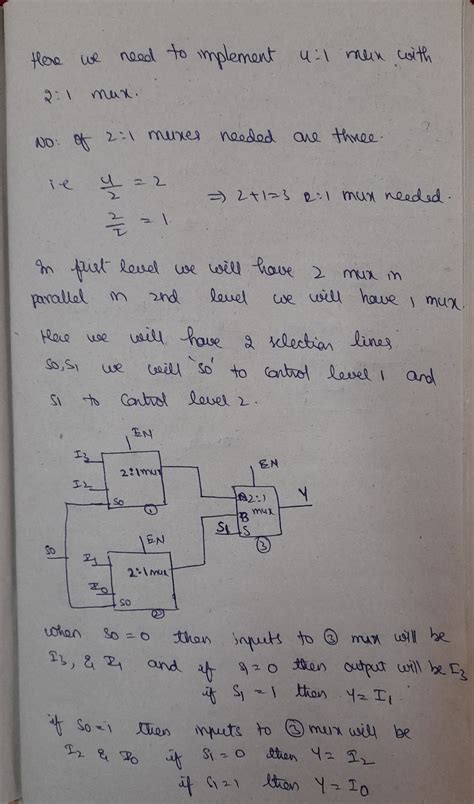 Here we need to implement 4:1 mux with
2:1 mux.
NO: of 2:1 muxes needed are three.
i.e 4/2 = 2 ⇒ 2+1=3 2:1 mux needed.
2/2 = 1
In first level we will have 2 mux in
parallel in 2nd level we will have 1 mux.
Here we will have 2 selection lines
S0,S1 we will 'S0' to control level 1 and
S1 to control level 2.
EN
I3
2:1 mux
I2
S0
①
EN
2:1
A
B
mux
Y
S1
S
③
S0
EN
I1
2:1 mux
I0
S0
②
when S0=0 then inputs to ③ mux will be
I3, & I1 and if S1=0 then output will be I3
if S1=1 then Y=I1
if S0=1 then inputs to ③ mux will be
I2 & I0 if S1=0 then Y=I2
if S1=1 then Y=I0